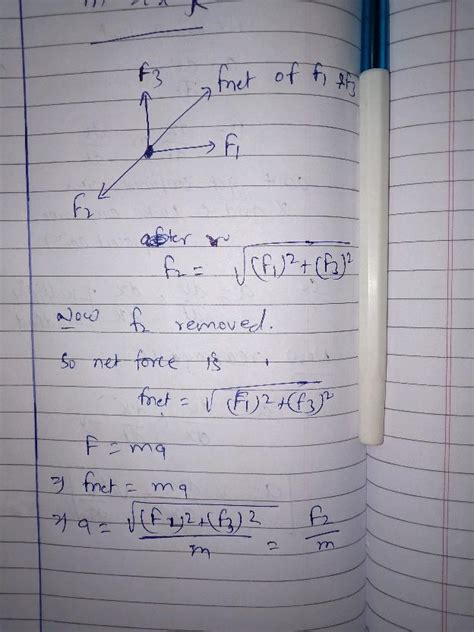 F3
fnet of f1 & f3
F1
F2
after
f2 = √(f1)²+(f3)²
Now f2 removed.
So net force is
fnet = √(F1)²+(f3)²
F = ma
⇒ fnet = ma
⇒ a = √(F1)²+(f3)² / m = F2 / m